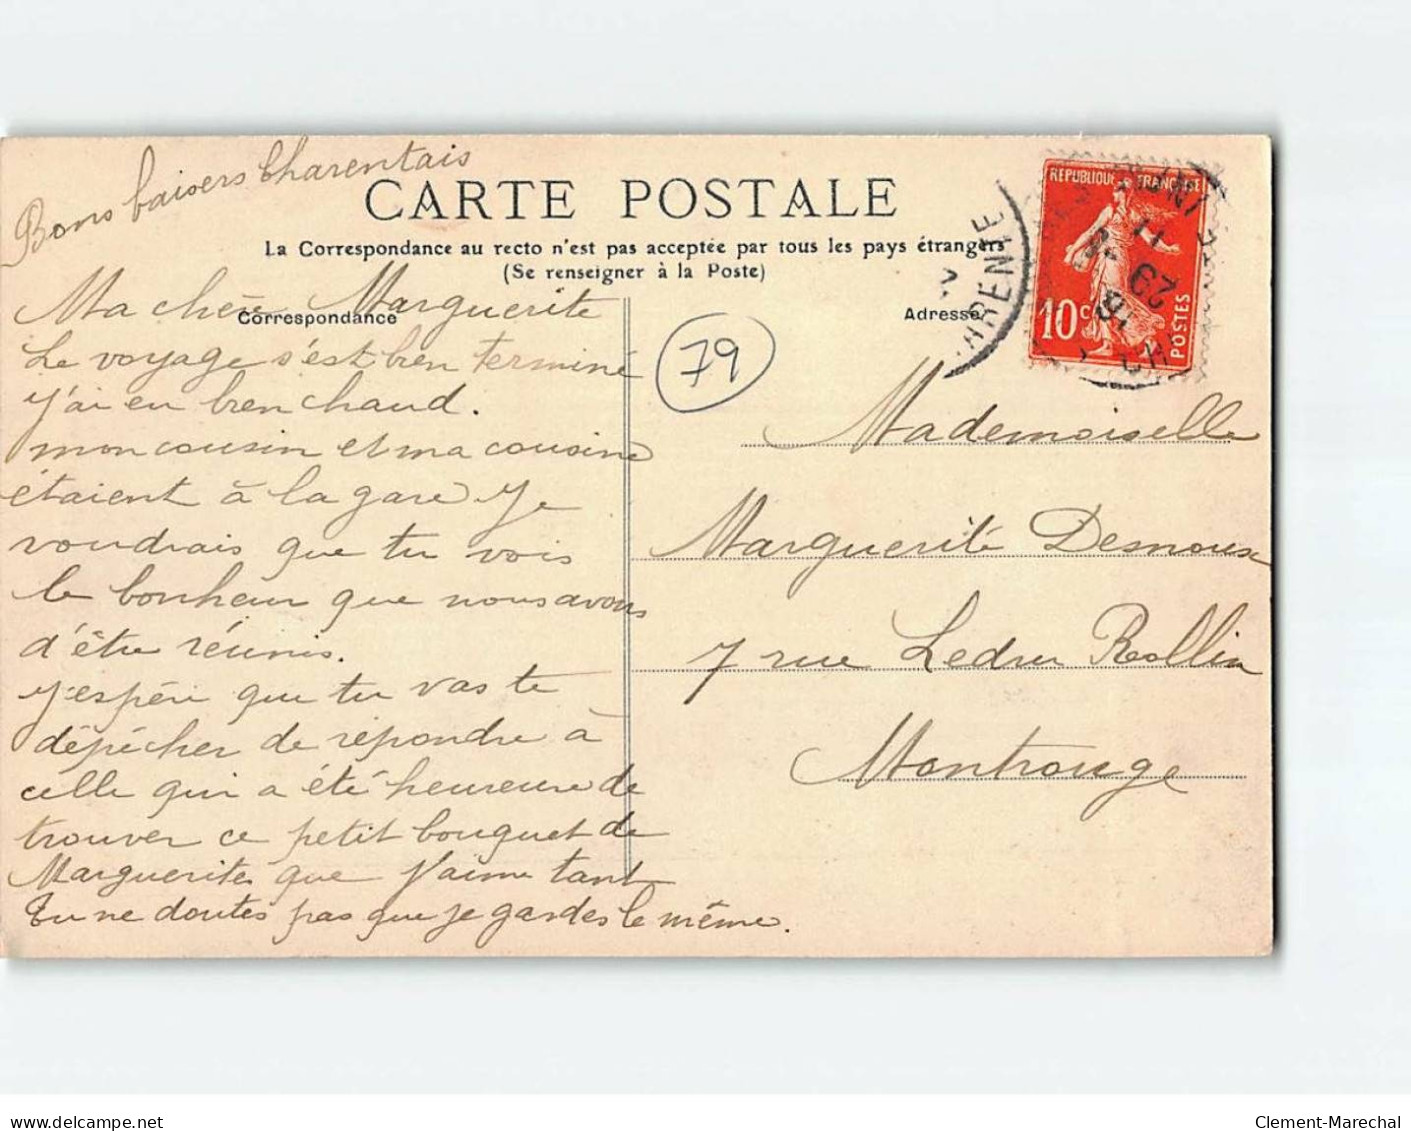 Bons baisers Charentais
CARTE POSTALE
La Correspondance au recto n'est pas acceptée par tous les pays étrangers
(Se renseigner à la Poste)
Correspondance
Adresse
REPUBLIQUE FRANÇAISE
10c
POSTES
79
Ma chère Marguerite
Le voyage s'est bien terminé
j'ai eu bien chaud.
mon cousin et ma cousine
étaient à la gare Je
voudrais que tu vois
le bonheur que nous avons
d'être réunis.
J'espère que tu vas te
dépêcher de répondre à
celle qui a été heureuse de
trouver ce petit bouquet de
Marguerites que j'aime tant
Tu ne doutes pas que je gardes le même.
Mademoiselle
Marguerite Desnoux
7 rue Ledru Rollin
Montrouge
delcampe.net
Clement-Marechal